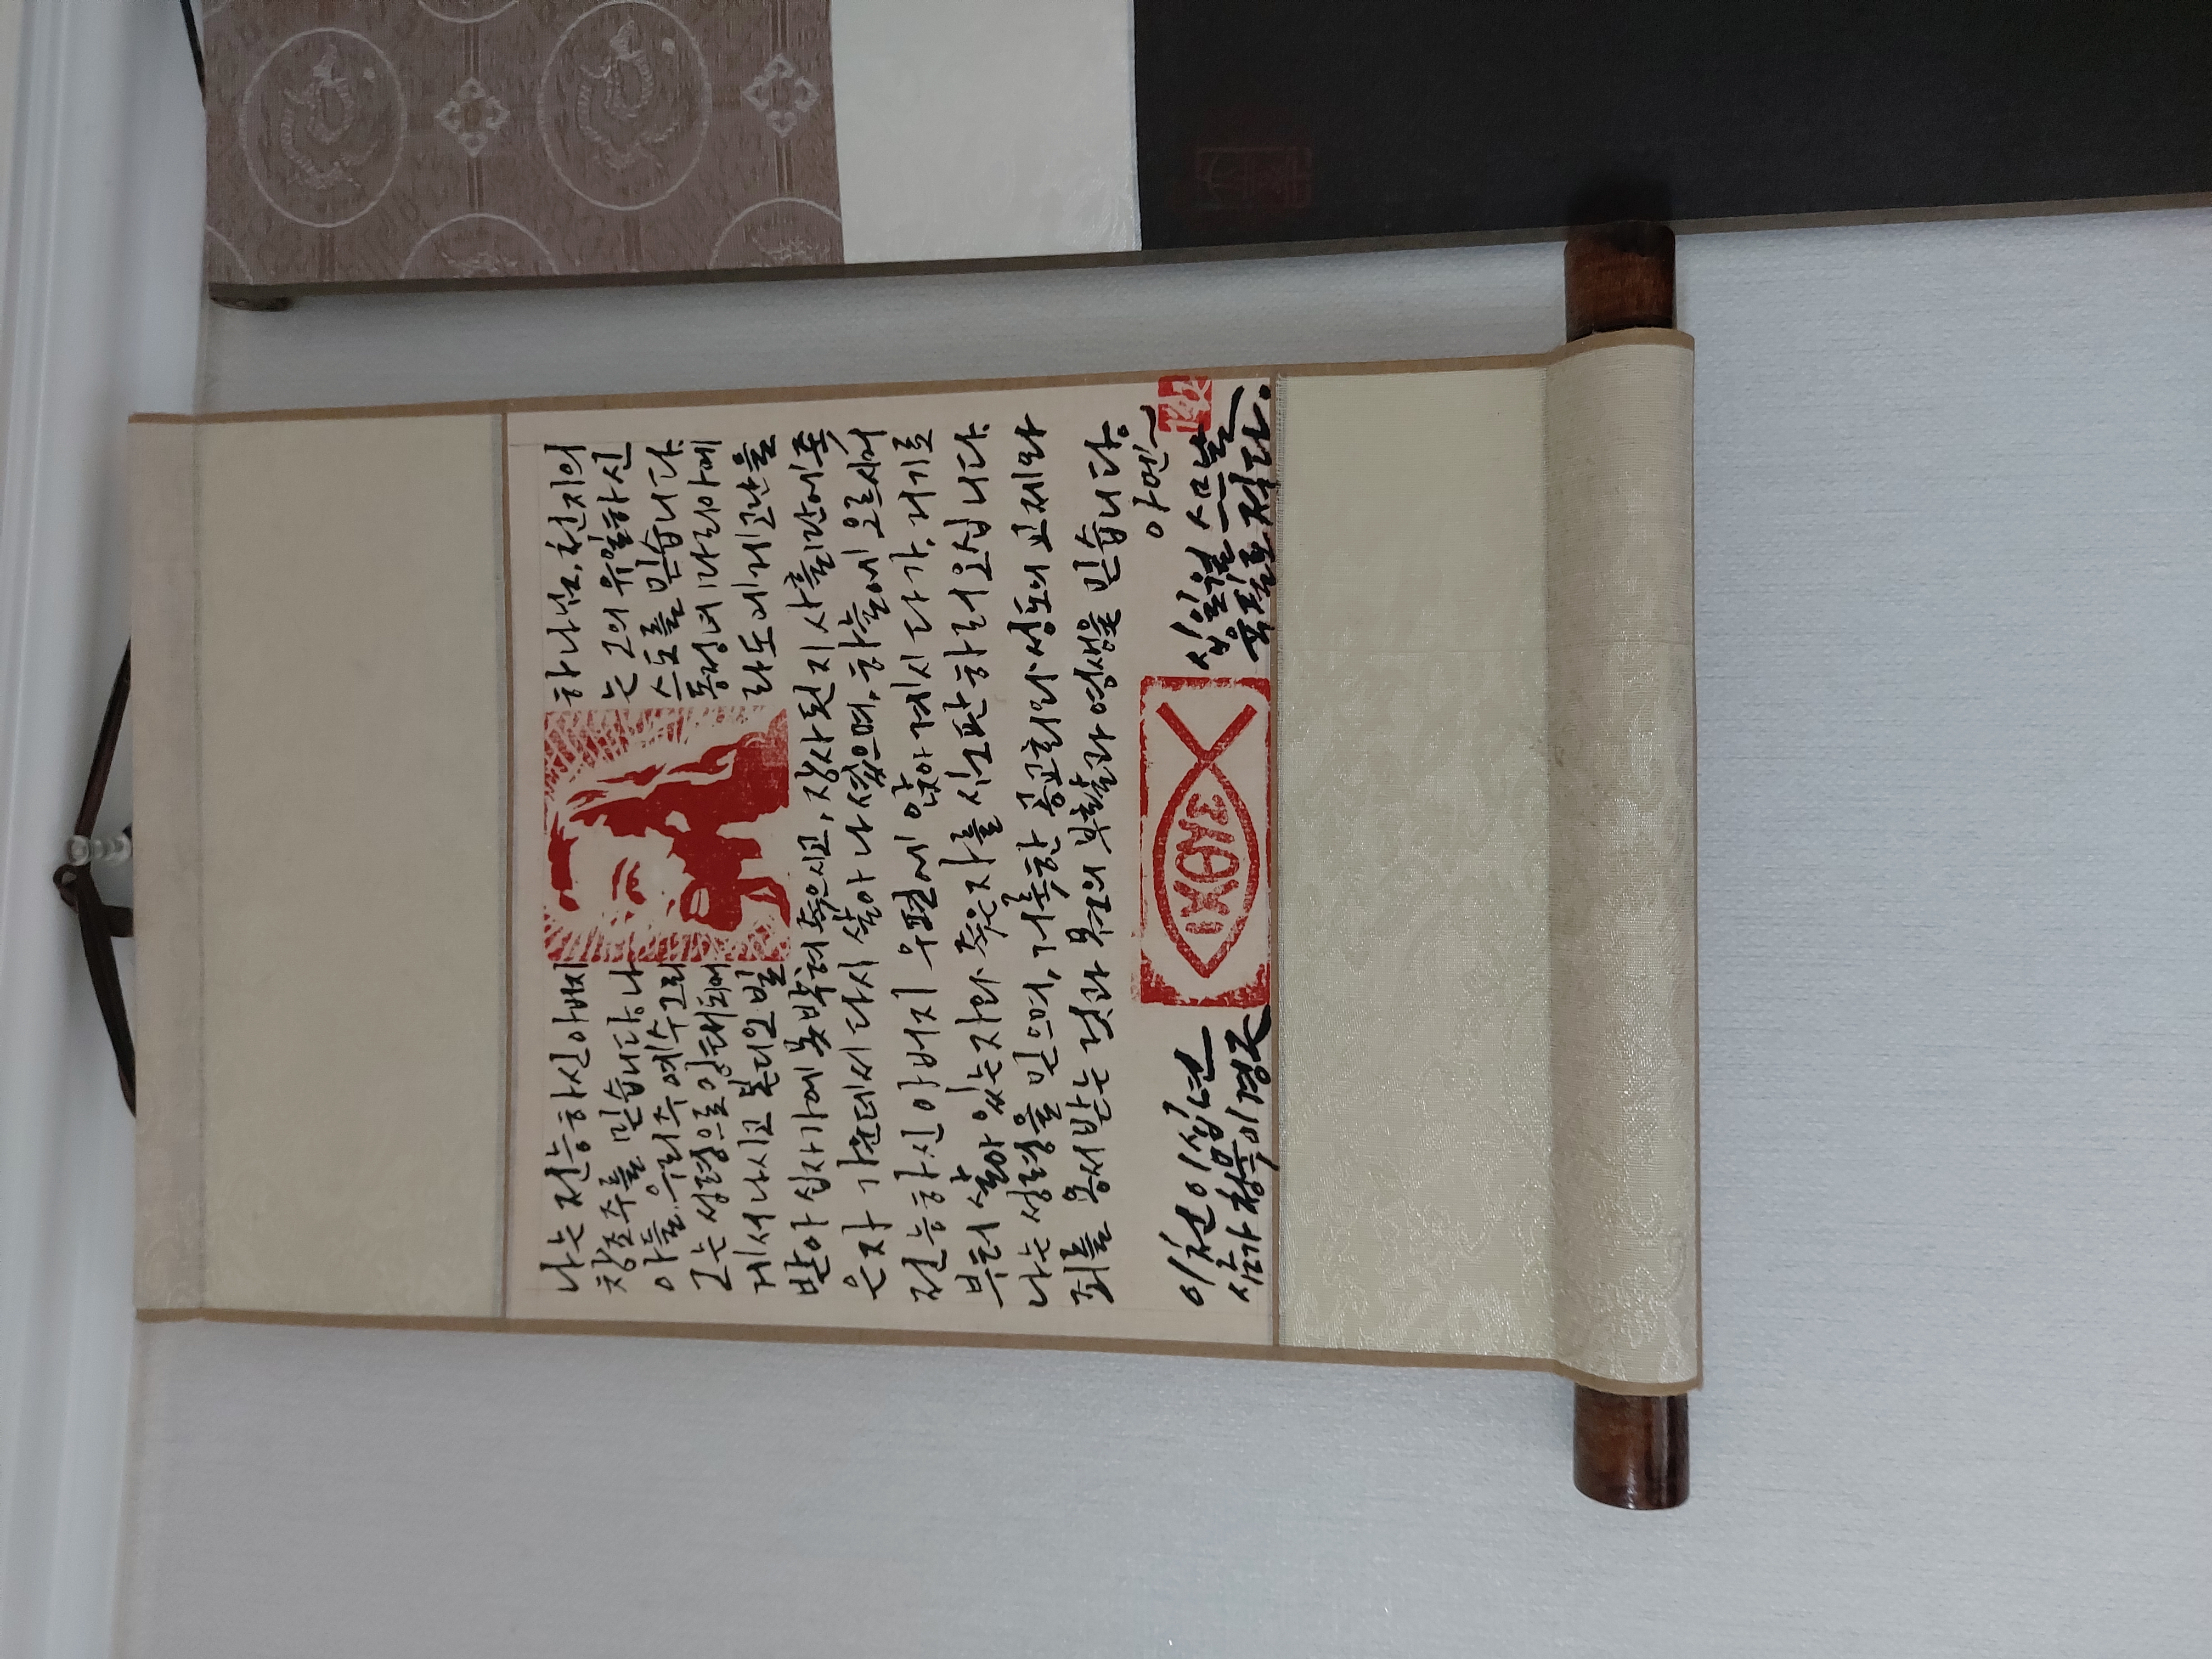 나는 전능하신 아버지 하나님, 천지의
창조주를 믿습니다. 나는 그의 유일하신
아들, 우리 주 예수 그리스도를 믿습니다.
그는 성령으로 잉태되어 동정녀 마리아에
게서 나시고 본디오 빌라도에게 고난을
받아 십자가에 못박혀 죽으시고, 장사된지 사흘만에 죽
은자 가운데서 다시 살아 나셨으며, 하늘에 오르시어
전능하신 아버지 우편에 앉아 계시다가, 거기로
부터 살아 있는자와 죽은자를 심판하러 오십니다.
나는 성령을 믿으며, 거룩한 공교회와 성도의 교제와
죄를 용서받는 것과 몸의 부활과 영생을 믿습니다.
아멘
이천이십년 십일월 스무날
적다.
ΙΧΘΥΣ